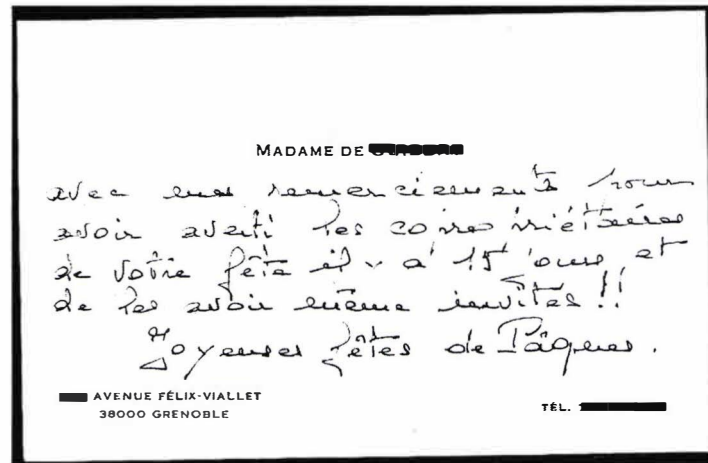 MADAME DE
avec mes remerciements pour
avoir averti les copropriétaires
de votre fête il y a 15 jours et
de les avoir même invités !!
Joyeuses fêtes de Pâques.
AVENUE FÉLIX-VIALLET
38000 GRENOBLE
TÉL.